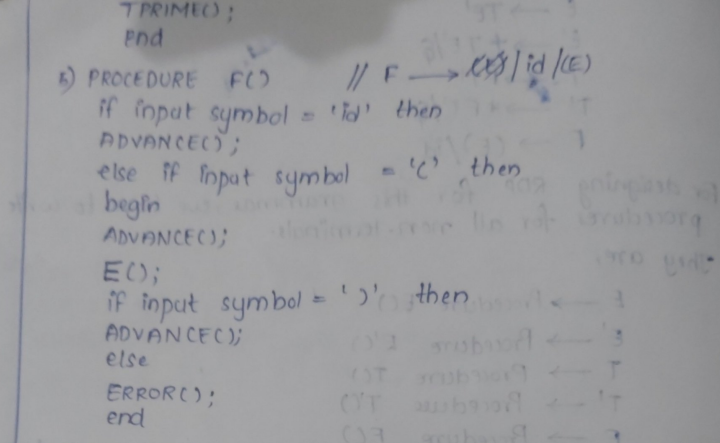 TPRIME();
End
5) PROCEDURE F() // F → /id/(E)
if input symbol = 'id' then
ADVANCE();
else if input symbol = '(' then
begin
ADVANCE();
E();
if input symbol = ')' then
ADVANCE();
else
ERROR();
end